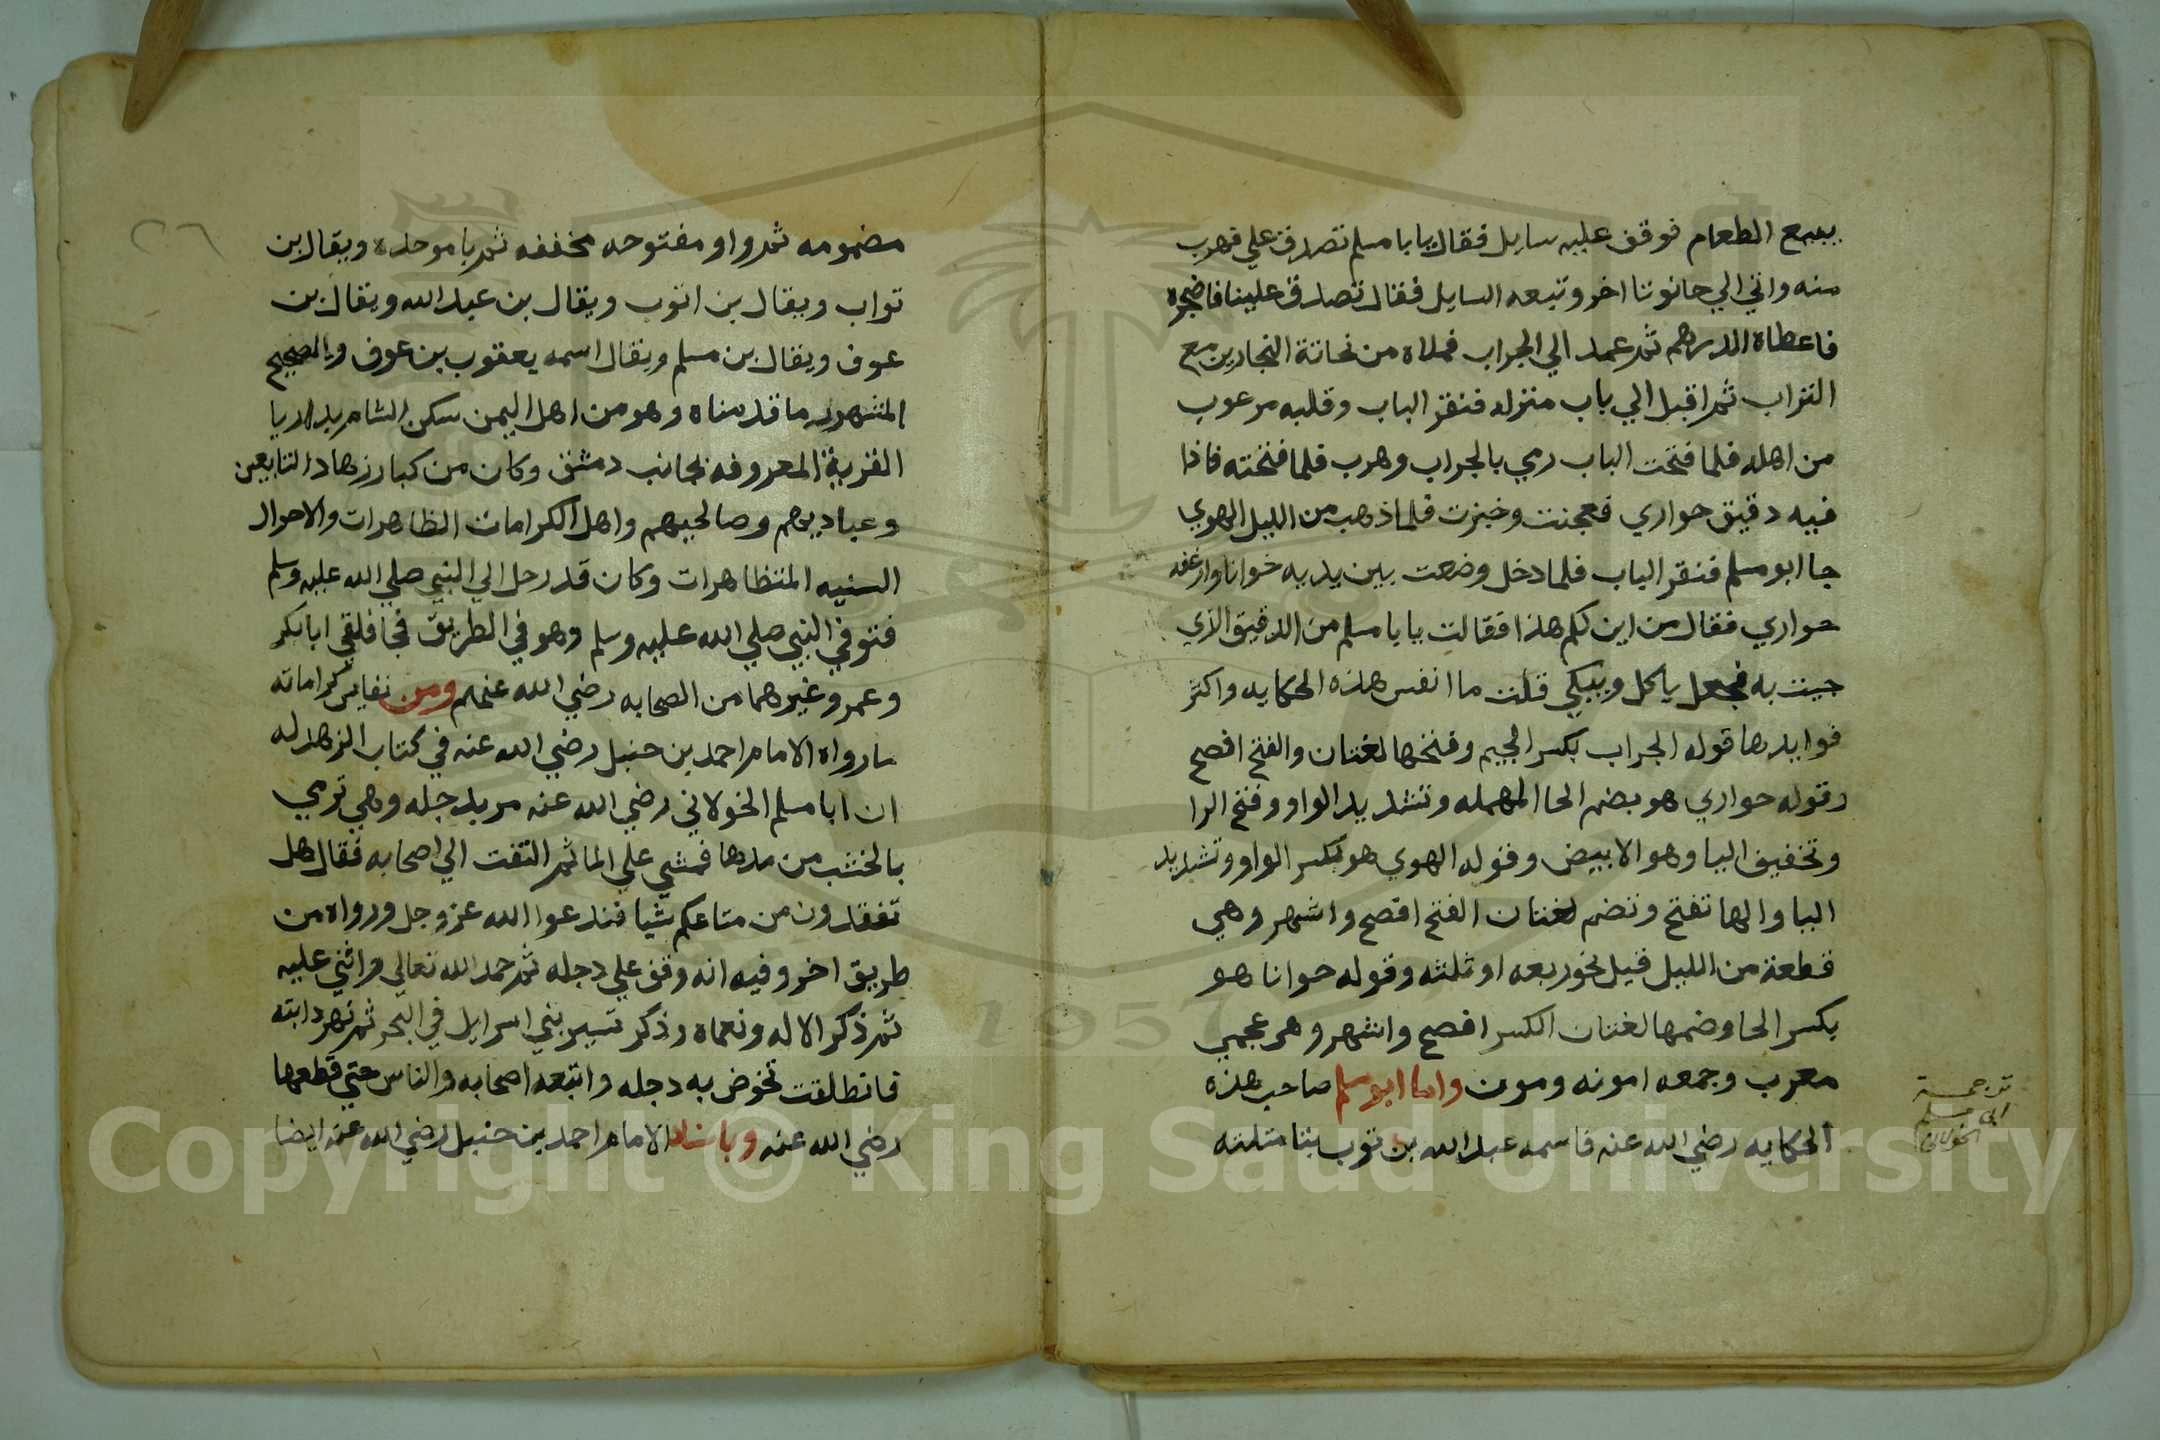 يبيع الطعام فوقف عليه سايل فقال يابا مسلم تصدق علي فهرب
منه واتي الي حانوتا اخر وتبعه السايل فقال تصدق علينا فاضجره
فاعطاه الدرهم ثم عمد الي الجراب فملاه من نحاتة النجارين مع
التراب ثم اقبل الي باب منزله فنقر الباب وقلبه مرعوب
من اهله فلما فتحت الباب رمي بالجراب وهرب فلما فتحته فاذا
فيه دقيق حواري فعجنت وخبزت فلما ذهب من الليل الهوي
جا ابو مسلم فنقر الباب فلما دخل وضعت بين يديه خوانا وارغفه
حواري فقال من اين لكم هذا فقالت يابا مسلم من الدقيق الذي
جيت به فجعل ياكل ويبكي قلت ما انفس هذه الحكايه واكثر
فوايدها قوله الجراب بكسر الجيم وفتحها لغتان والفتح افصح
وقوله حواري هو بضم الحا المهمله وتشديد الواو وفتح الرا
وتخفيف اليا وهو الابيض وقوله الهوي هو بكسر الواو وتشديد
اليا والها تفتح وتضم لغتان الفتح افصح واشهر وهي
قطعة من الليل قيل نحو ربعه او ثلثه وقوله خوانا هو
بكسر الخا وضمها لغتان الكسر افصح واشهر وهو عجمي
معرب وجمعه اخونه وخون واما ابو مسلم صاحب هذه
الحكايه رضي الله عنه فاسمه عبد الله بن ثوب بثا مثلثه
ترجمة
ابي مسلم
الخولاني
٢٦
مضمومه ثم واو مفتوحه مخففه ثم با موحده ويقال بن
ثواب ويقال بن اثوب ويقال بن عبد الله ويقال بن
عوف ويقال بن مسلم ويقال اسمه يعقوب بن عوف والصحيح
المشهور ما قدمناه وهو من اهل اليمن سكن الشام بداريا
القرية المعروفه بجانب دمشق وكان من كبار زهاد التابعين
وعباديهم وصالحيهم واهل الكرامات الظاهرات والاحوال
السنيه المتظاهرات وكان قد رحل الي النبي صلي الله عليه وسلم
فتوفي النبي صلي الله عليه وسلم وهو في الطريق فجا فلقي ابا بكر
وعمر وغيرهما من الصحابه رضي الله عنهم ومن نفايس كراماته
ما رواه الامام احمد بن حنبل رضي الله عنه في كتاب الزهد له
ان ابا مسلم الخولاني رضي الله عنه مر بدجله وهي ترمي
بالخشب من مدها فمشي علي الما ثم التفت الي اصحابه فقال هل
تفقدون من متاعكم شيا فندعوا الله عز وجل ورواه من
طريق اخر وفيه انه وقف علي دجله ثم حمد الله تعالي واثني عليه
ثم ذكر الاله ونعماه وذكر تسير بني اسرايل في البحر ثم نهر دابته
فانطلقت تخوض به دجله واتبعه اصحابه والناس حتي قطعها
رضي الله عنه وباسناد الامام احمد بن حنبل رضي الله عنه ايضا
1957
Copyright © King Saud University